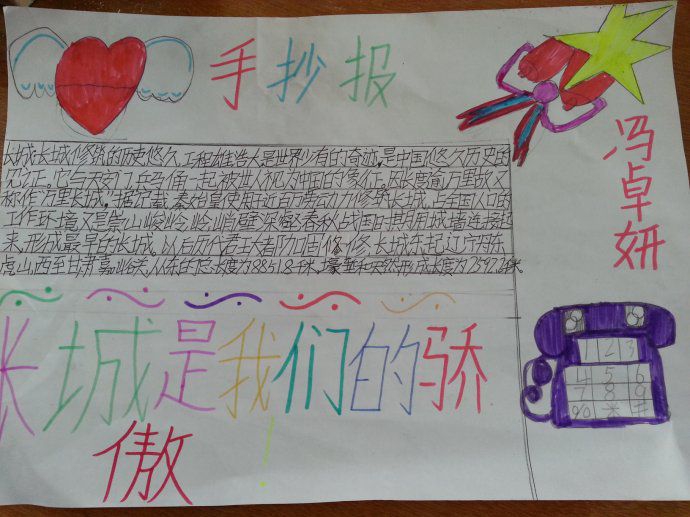 手抄报
冯卓妍
长城长城修筑的历史悠久,工程雄浩大是世界少有的奇迹,是中国悠久历史的
见证。它与天安门,兵马俑一起被世人视为中国的象征。因长度逾万里故又
称作万里长城。据记载,秦始皇使用近百万劳动力修筑长城,占全国人口的
工作环境又是崇山峻岭,峭壁深壑春秋战国时期用城墙连接起
来,形成最早的长城。以后历代君王大都加固修,长城东起辽宁丹东
虎山,西至甘肃嘉峪关,从东的总长度为8851.8千米,壕堑和天然形成长度为2592.2千米
长城是我们的骄
傲!
1 2 3
4 5 6
7 8 9
0 * #